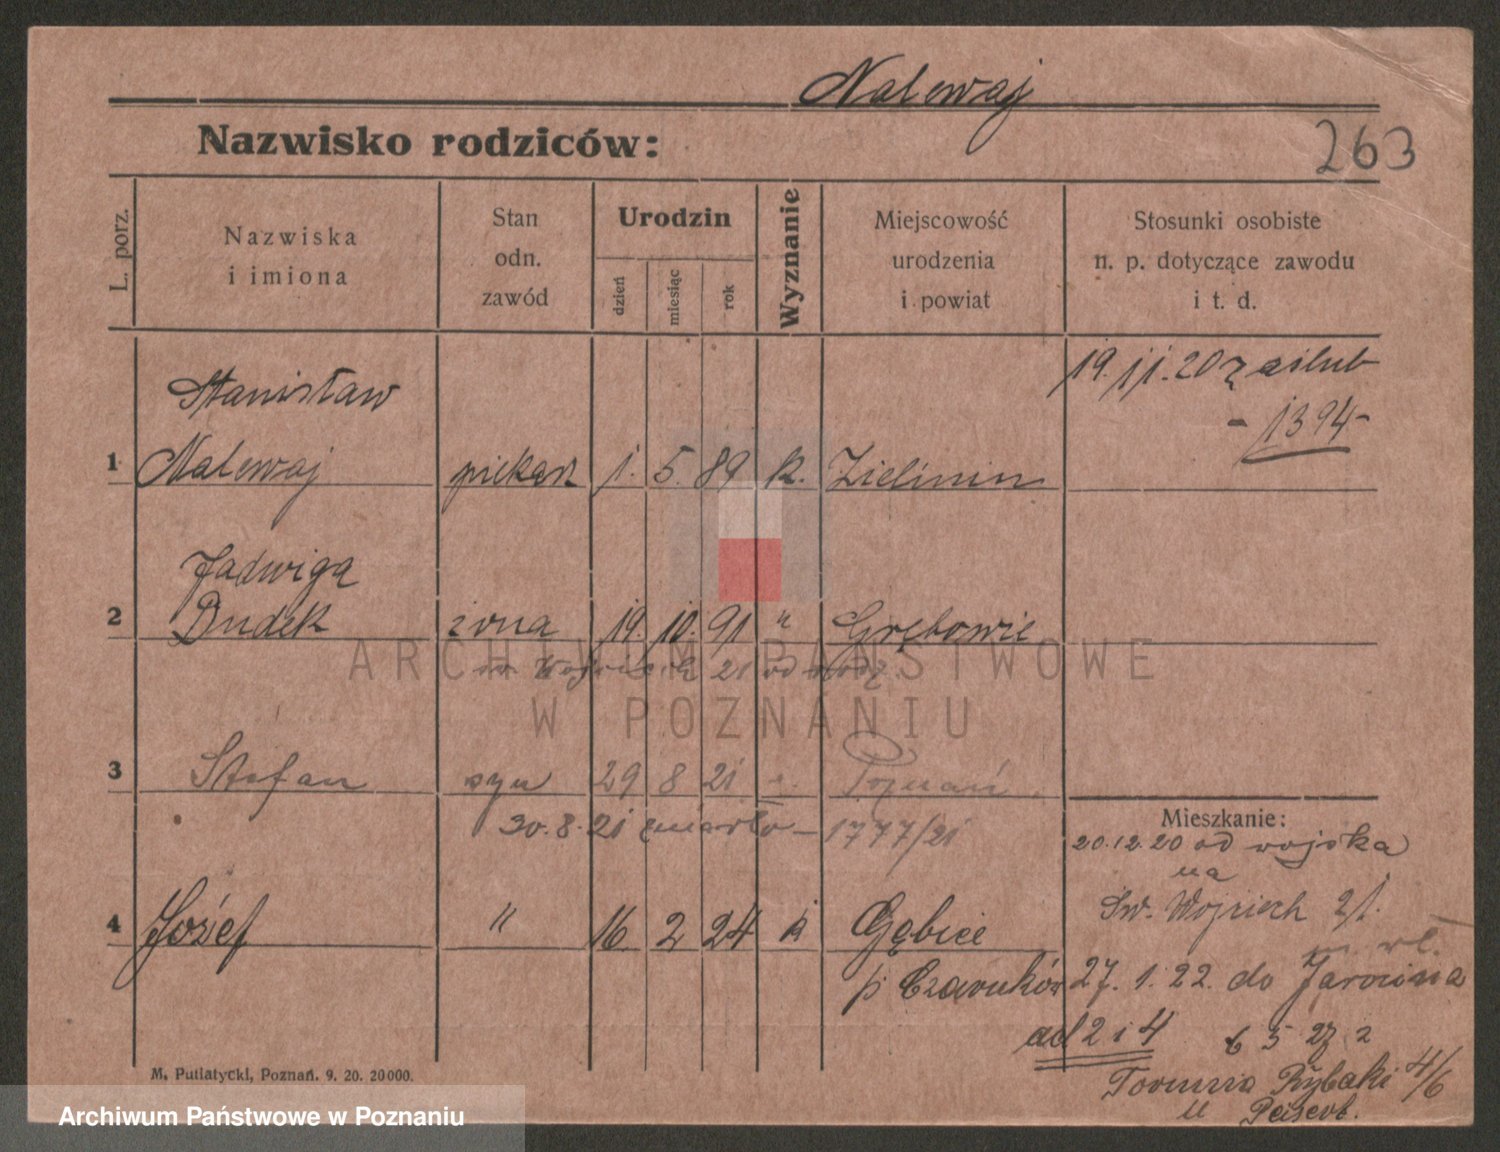 Nalewaj
Nazwisko rodziców:
263
L. porz.
Nazwiska
i imiona
Stan
odn.
zawód
Urodzin
dzień
miesiąc
rok
Wyznanie
Miejscowość
urodzenia
i powiat
Stosunki osobiste
n. p. dotyczące zawodu
i t. d.
19.11.20 zaślub
- 1394 -
Stanisław
1 Nalewaj piekarz 1. 5. 89 k. Zielinin
Jadwiga
2 Dudek żona 19. 10. 91 " Grębowie
21 od
ARCHIWUM PAŃSTWOWE
W POZNANIU
3 Stefan syn 29 8 21 Poznań
30.8.21 zmarło - 1777/21
Mieszkanie:
20.12.20 od wojska
na
Św. Wojciech 21.
4 Józef " 16 2 24 k Gębice
p. Czarnków
27.1.22. do Jarocina
ad 2 i 4
Rybaki 4/6
M. Putiatycki, Poznań. 9. 20. 20000.
Archiwum Państwowe w Poznaniu